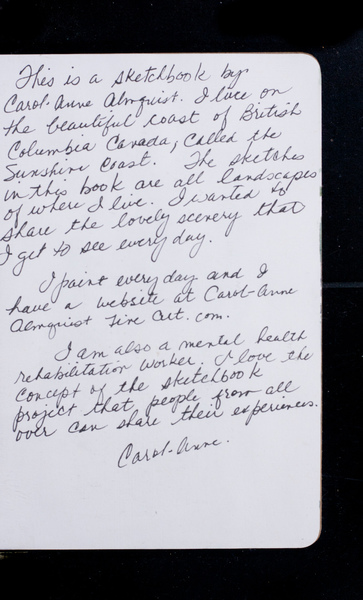 This is a sketchbook by
Carol-Anne Almquist. I live on
the beautiful coast of British
Columbia Canada, called the
Sunshine Coast. The sketches
in this book are all landscapes
of where I live. I wanted to
share the lovely scenery that
I get to see every day.
I paint every day and I
have a website at Carol-Anne
Almquist Fine Art. com.
I am also a mental health
rehabilitation worker. I love the
concept of the sketchbook
project that people from all
over can share their experiences.
Carol-Anne.